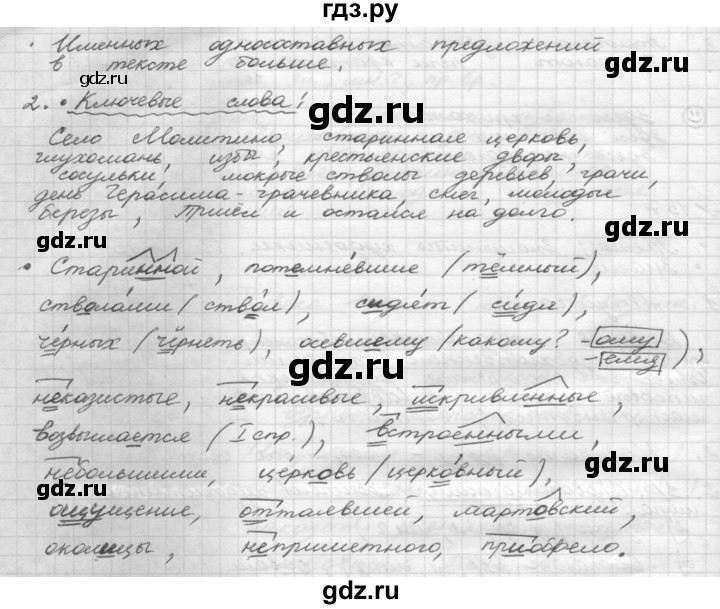 гдз.ру
· Именных односоставных предложений
в тексте больше.
2. · Ключевые слова:
Село Молитино, старинная церковь,
глухомань, избы, крестьянские дворы,
сосульки, мокрые стволы деревьев, грачи,
день Герасима-грачевника, снег, молодые
березы, пришёл и остался на долго.
· Старинной, потемневшие (тёмный),
стволами (ствол), сидят (сидя),
чёрных (чернеть), осевшему (какому? -ому
-ему),
неказистые, некрасивые, искривленные,
возвышается (I спр.), встроенными,
небольшими, церковь (церковный),
ощущение, оттаявшей, мартовский,
околицы, неприметного, приобрело.
gdz.ru
gdz.ru
gdz.ru
gdz.ru
gdz.ru
gdz.ru
gdz.ru
gdz.ru
gdz.ru
gdz.ru
gdz.ru
gdz.ru